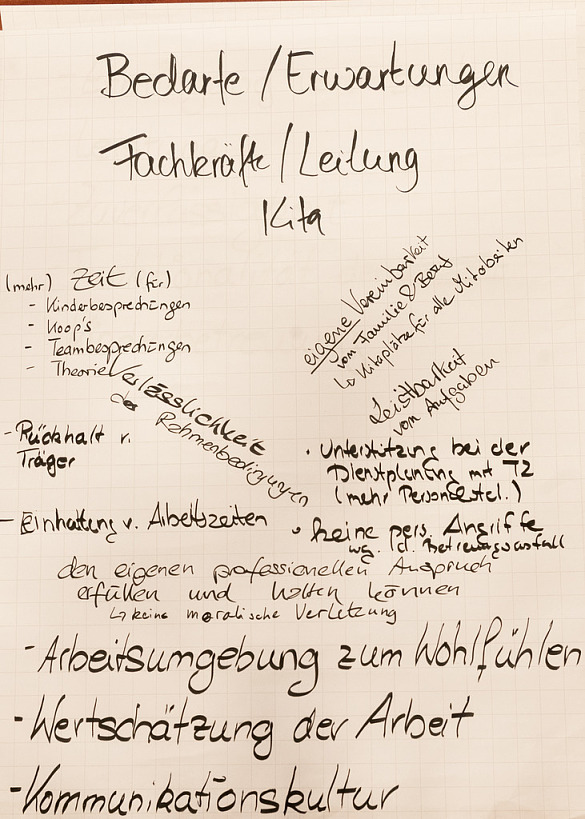 Bedarfe / Erwartungen
Fachkräfte / Leitung
Kita
(mehr) Zeit (für)
- Kinderbesprechungen
- Koop's
- Teambesprechungen
- Theorie
Verlässlichkeit
der Rahmenbedingungen
eigene Vereinbarkeit
vom Familie & Beruf
↳ Kitaplätze für alle Mitarbeiten
Leistbarkeit
vom Aufgaben
- Rückhalt v.
Träger
• Unterstützung bei der
Dienstplanung mit T2
(mehr Personalstel.)
- Einhaltung v. Arbeitszeiten
• keine pers. Angriffe
wg. d. Betreuungsausfall
den eigenen professionellen Anspruch
erfüllen und halten können
↳ keine moralische Verletzung
- Arbeitsumgebung zum Wohlfühlen
- Wertschätzung der Arbeit
- Kommunikationskultur